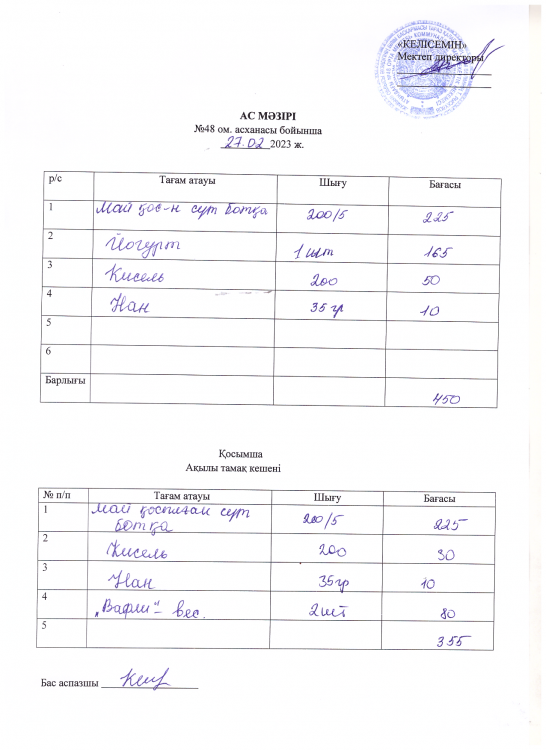 «КЕЛІСЕМІН»
Мектеп директоры
АС МӘЗІРІ
№48 ом. асханасы бойынша
27.02 2023 ж.
р/с Тағам атауы Шығу Бағасы
1 Май қос-н сүт ботқа 200/5 225
2 Йогурт 1 шт 165
3 Кисель 200 50
4 Нан 35 гр 10
5
6
Барлығы 450
Қосымша
Ақылы тамақ кешені
№ п/п Тағам атауы Шығу Бағасы
1 Май қосылған сүт
ботқа 200/5 225
2 Кисель 200 30
3 Нан 35гр 10
4 „Вафли“ - вес. 2 шт 80
5 355
Бас аспазшы